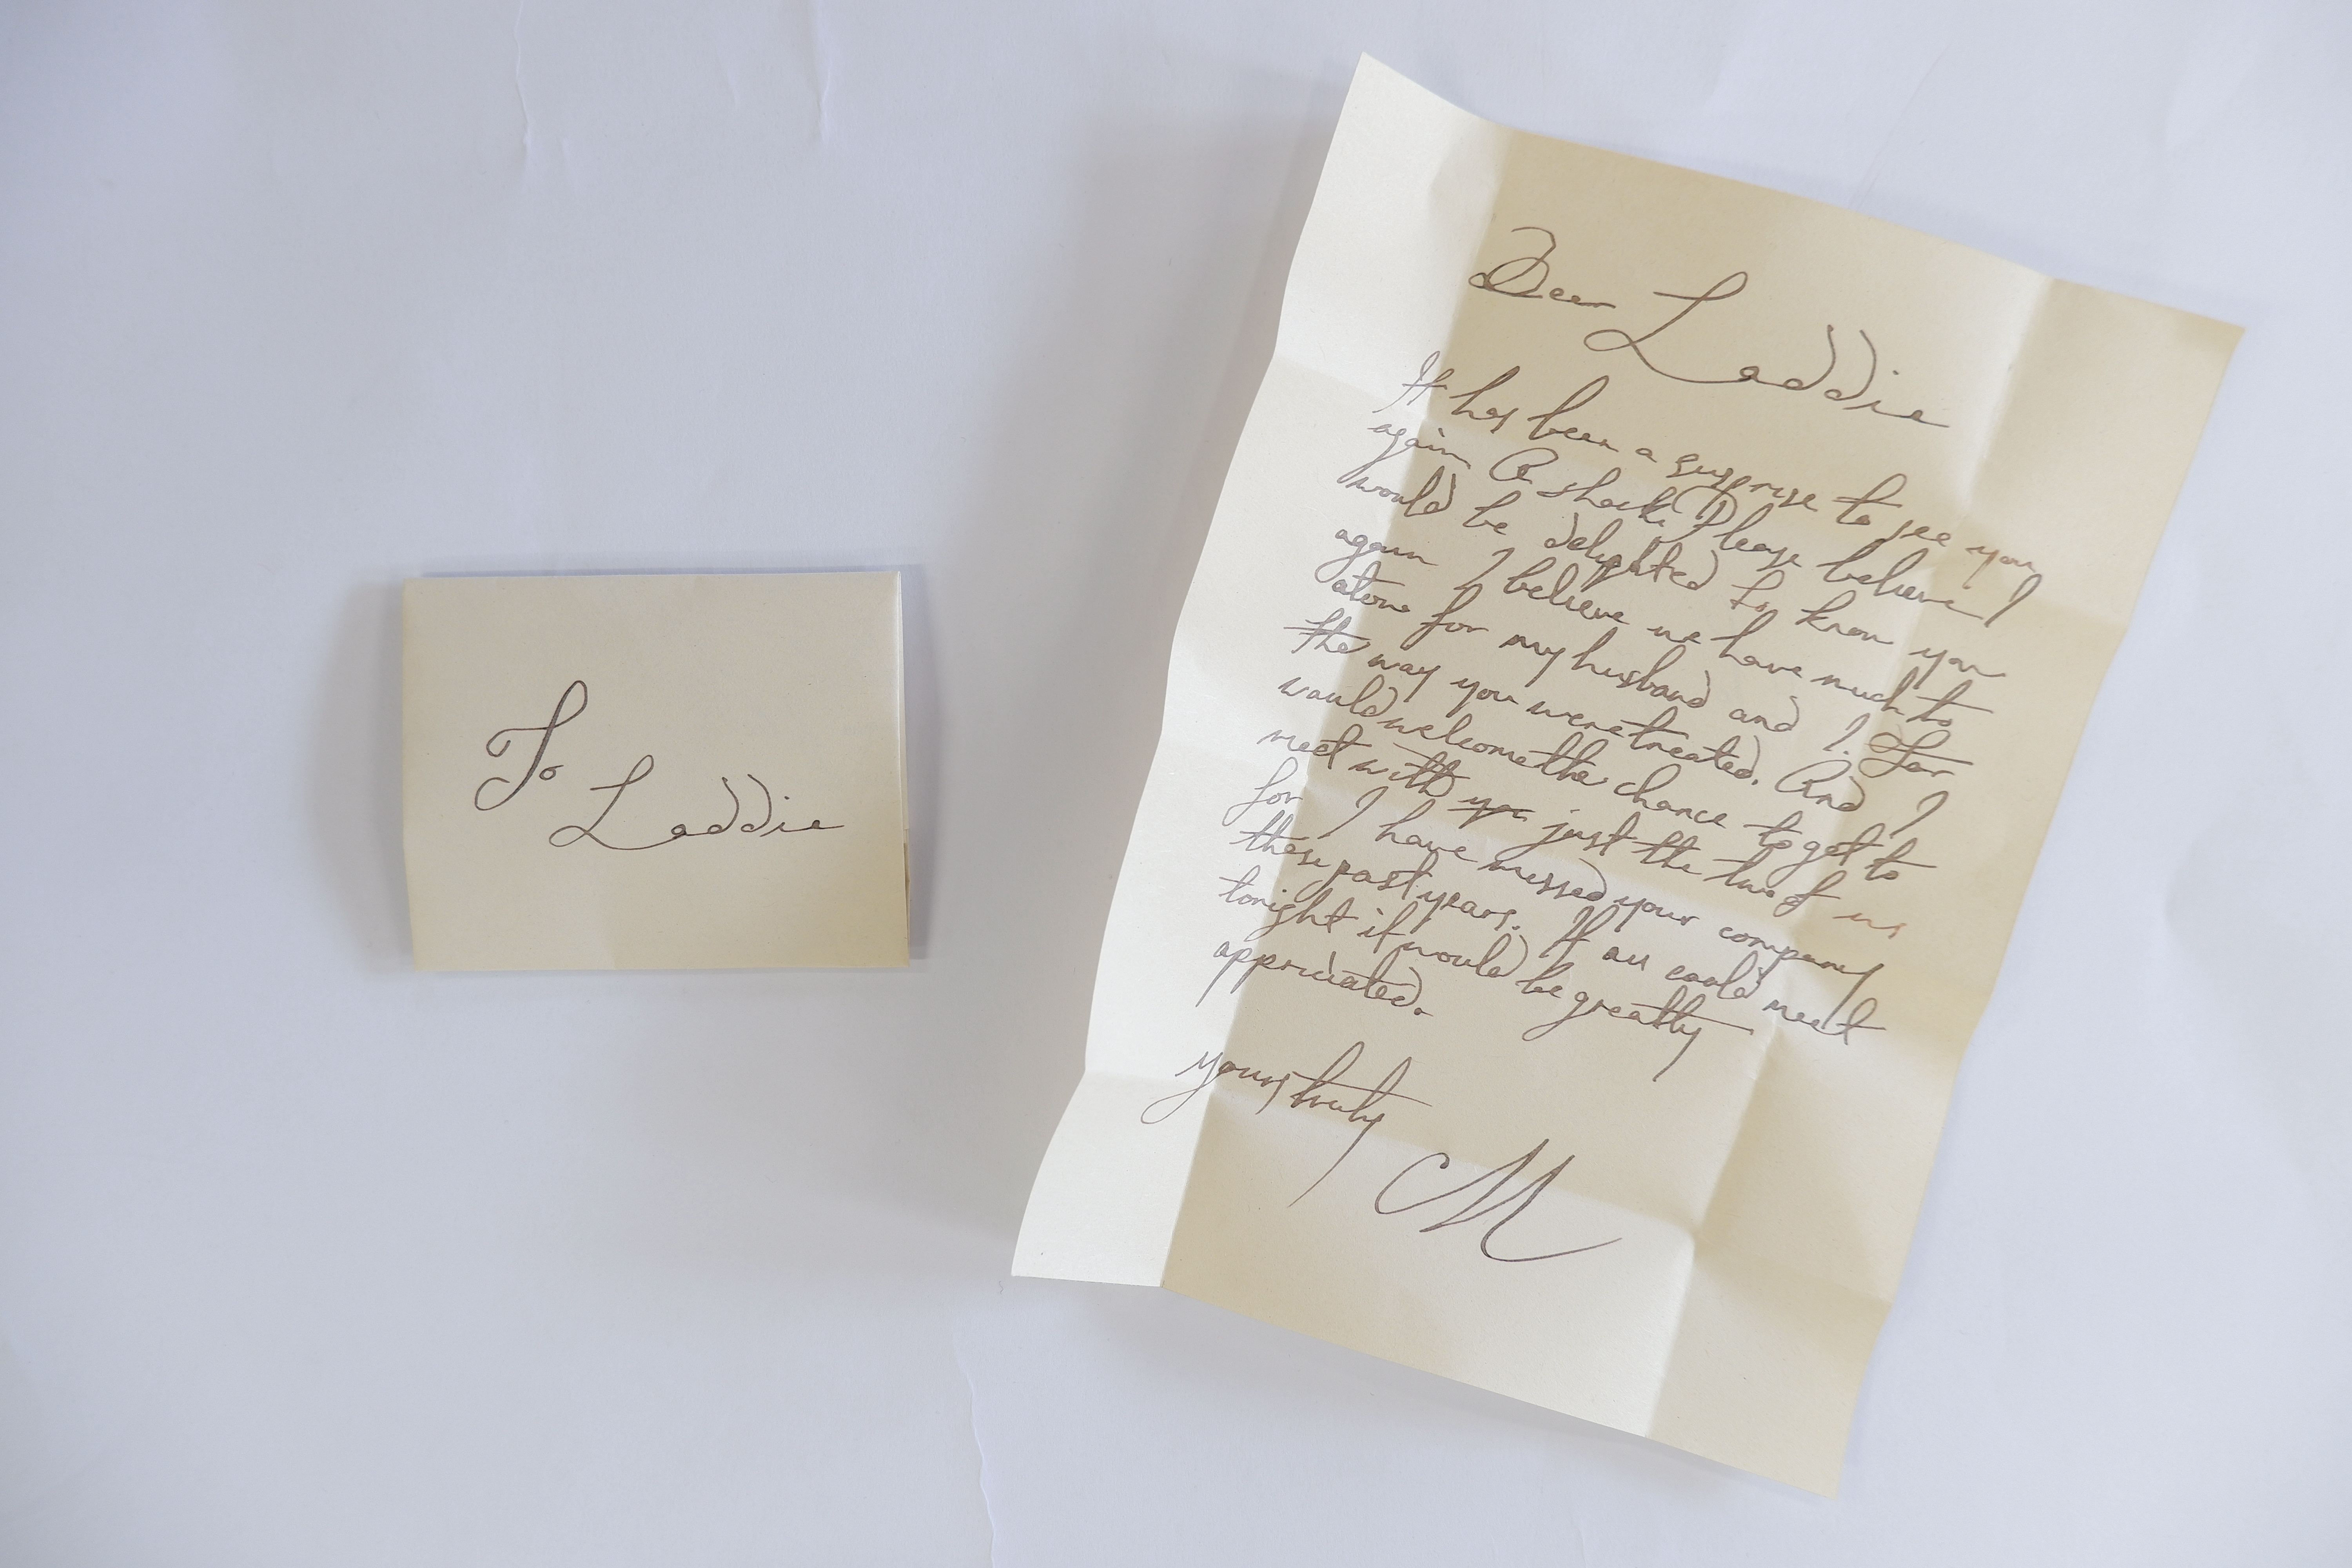 To
Laddie
Dear Laddie
It has been a surprise to see you
again A shock. Please believe I
would be delighted to know you
again I believe we have much to
atone for my husband and I. For
the way you were treated. And I
would welcome the chance to get to
meet with you just the two of us
for I have missed your company
these past years. If we could meet
tonight it would be greatly
appriciated.
yours truly
M